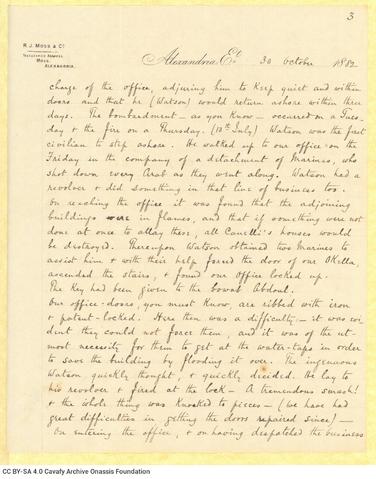 3
R. J. Moss & Co.
Alexandria, Et. 30 October 1882
charge of the office, adjuring him to keep quiet and within
doors and that he (Watson) would return ashore within three
days. The bombardment — as you know — occurred on a Tues-
day & the fire on a Thursday. (13th July) Watson was the first
civilian to step ashore. He walked up to our office on the
Friday in the company of a detachment of Marines, who
shot down every Arab as they went along. Watson had a
revolver & did something in that line of business too.
On reaching the office it was found that the adjoining
buildings were in flames, and that if something were not
done at once to allay these, all Cumelli's houses would
be destroyed. Thereupon Watson obtained two Marines to
assist him & with their help forced the door of our Okella,
ascended the stairs, & found our office locked up.
The key had been given to the bowab Abdoul.
Our office-doors, you must know, are ribbed with iron
& patent-locked. Here then was a difficulty — it was evi-
dent they could not force them, and it was of the ut-
most necessity for them to get at the water-taps in order
to save the building by flooding it over. The ingenuous
Watson quickly thought, & quickly decided. He lay to
his revolver & fired at the lock — A tremendous smash!
& the whole thing was knocked to pieces — (we have had
great difficulties in getting the doors repaired since) —
On entering the office, & on having dispatched the business
CC BY-SA 4.0 Cavafy Archive Onassis Foundation